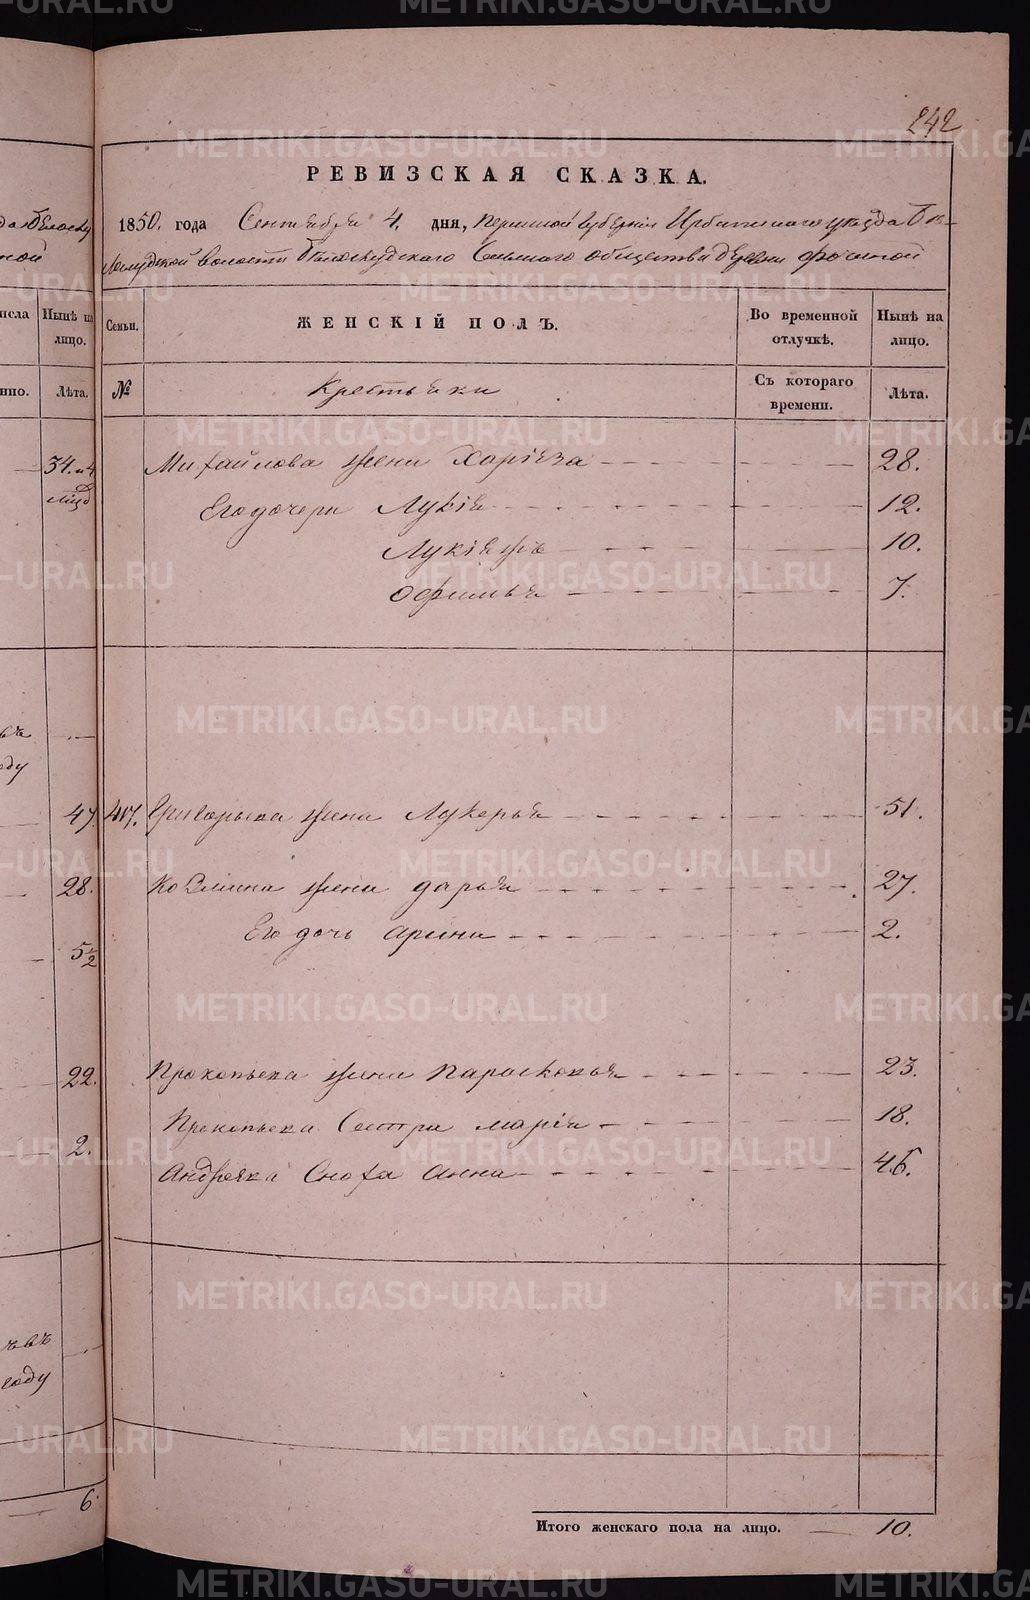 242
РЕВИЗСКАЯ СКАЗКА.
1850. года Сентября 4. дня, Пермской Губернии Ирбитскаго уезда Бе-
лослудской волости Белослудскаго Сельскаго общества деревни
Семьи. ЖЕНСКІЙ ПОЛЪ. Во временной отлучкѣ. Нынѣ на лицо.
№ Крестьянки Съ котораго времени. Лѣта.
Михайлова жена Харіеза 28.
Его дочери Лукія 12.
Лукія жъ 10.
Офимья 7.
417. Григорьева жена Лукерья 51.
Козмина жена дарья 27.
Его дочь арина 2.
Прокопьева жена Парасковья 23.
Прокопьева Сестра марія 18.
Андреяна Сноха Анна 46.
Итого женскаго пола на лицо. 10.
Нынѣ на лицо.
Лѣта.
34.
47.
28.
5½
22.
2.
6.
METRIKI.GASO-URAL.RU